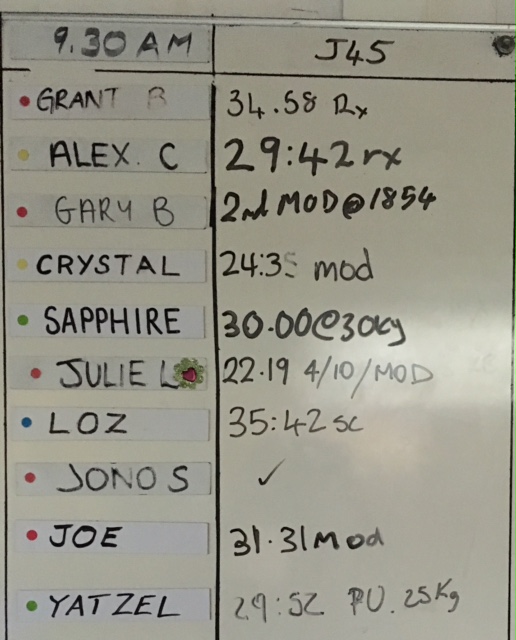 9.30 AM J45
GRANT B 34.58 Rx
ALEX. C 29:42 rx
GARY B 2nd MOD@1854
CRYSTAL 24:35 mod
SAPPHIRE 30.00@30kg
JULIE L 22.19 4/10/MOD
LOZ 35:42 sc
JONO S ✓
JOE 31.31 Mod
YATZEL 29:52 PU. 25Kg